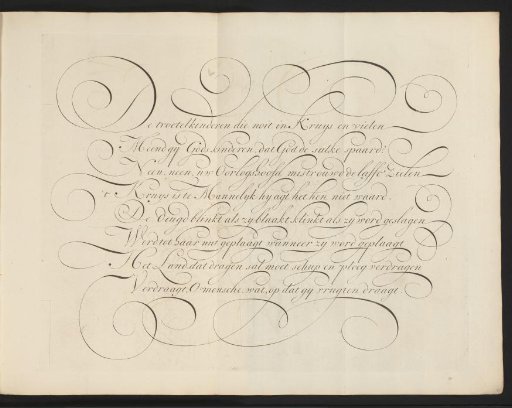 De troetelkinderen die noit in Kruys en vielen
Meend gy Gods kinderen, dat God se sulke spaard?
Neen, neen, uw Oorlogshoofd mistroud de laffe Zielen
't Kruys is te Mannelyk hy agt het hen niet waard.
De Deugd blinkt als zy blaakt, klinkt als zy word geslagen
Werd tot haar nut geplaagt wanneer zy word geplaagt
Het Land dat dragen sal moet schup en ploeg verdragen
Verdraagt, O mensche, wat, op dat gy vrugten draagt!